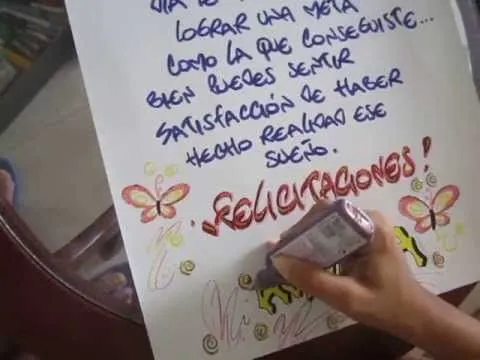 LOGRAR UNA META
COMO LA QUE CONSEGUISTE...
BIEN PUEDES SENTIR
SATISFACCIÓN DE HABER
HECHO REALIDAD ESE
SUEÑO.
¡FELICITACIONES!